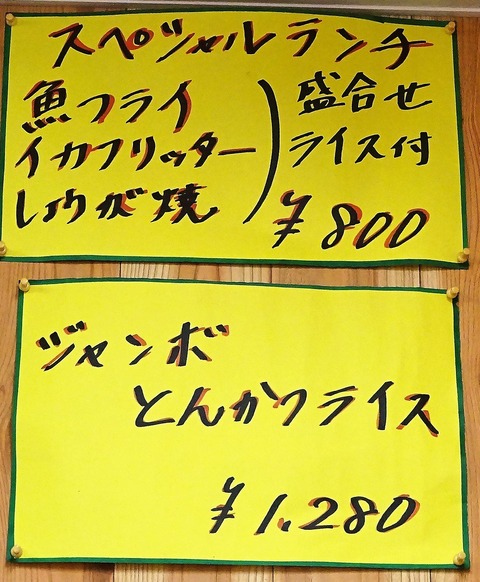 スペシャルランチ
魚フライ
イカフリッター
しょうが焼
盛合せ
ライス付
¥800
ジャンボ
とんかつライス
¥1,280